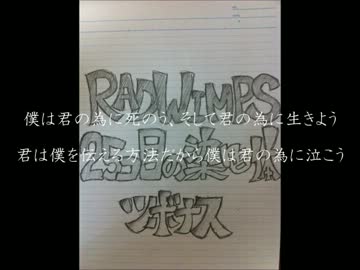 RADWIMPS
僕は君の為に死のう、そして君の為に生きよう
君は僕を伝える方法だから僕は君の為に泣こう
2つ目の楽しい体
ツボナス